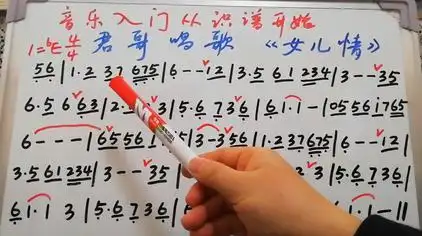 音乐入门从识谱开始
1=ᵇE 4/4 君哥唱歌 《女儿情》
56 | 1·2 37 675 | 6 - - 12 | 3·5 61 234 | 3 - - 35
6·5 6 63 | 2· 3 | 5·6 736 | 61·1 - | 05 556 1765
6 - - - | 65 556 1 35 | 3 - 356 | 1·2 37675 | 6 - - 12 |
3·5 61 234 | 3 - - 35 3 | 5·6 736 |
61·1 3 | 5·6 736 | 6 1·1 - ||